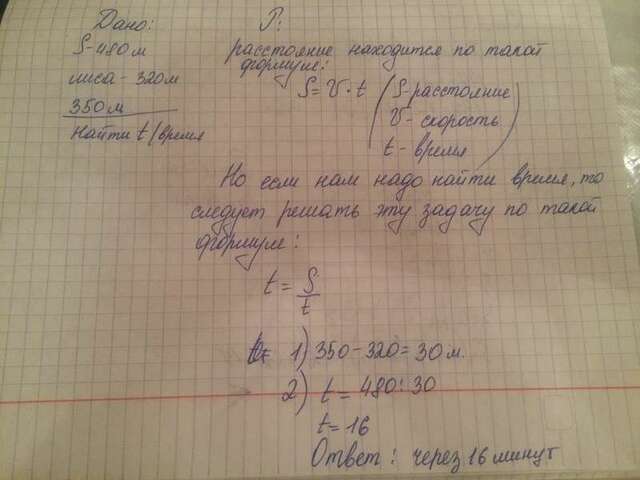 Дано:
S-480м
лиса - 320м
350м
Найти t/время
Р:
расстояние находится по такой
формуле:
S=V·t
(S расстояние
V- скорость
t- время)
Но если нам надо найти время, то
следует решать эту задачу по такой
формуле:
t = S/t
1) 350-320=30м.
2) t = 480:30
t=16
Ответ: через 16 минут